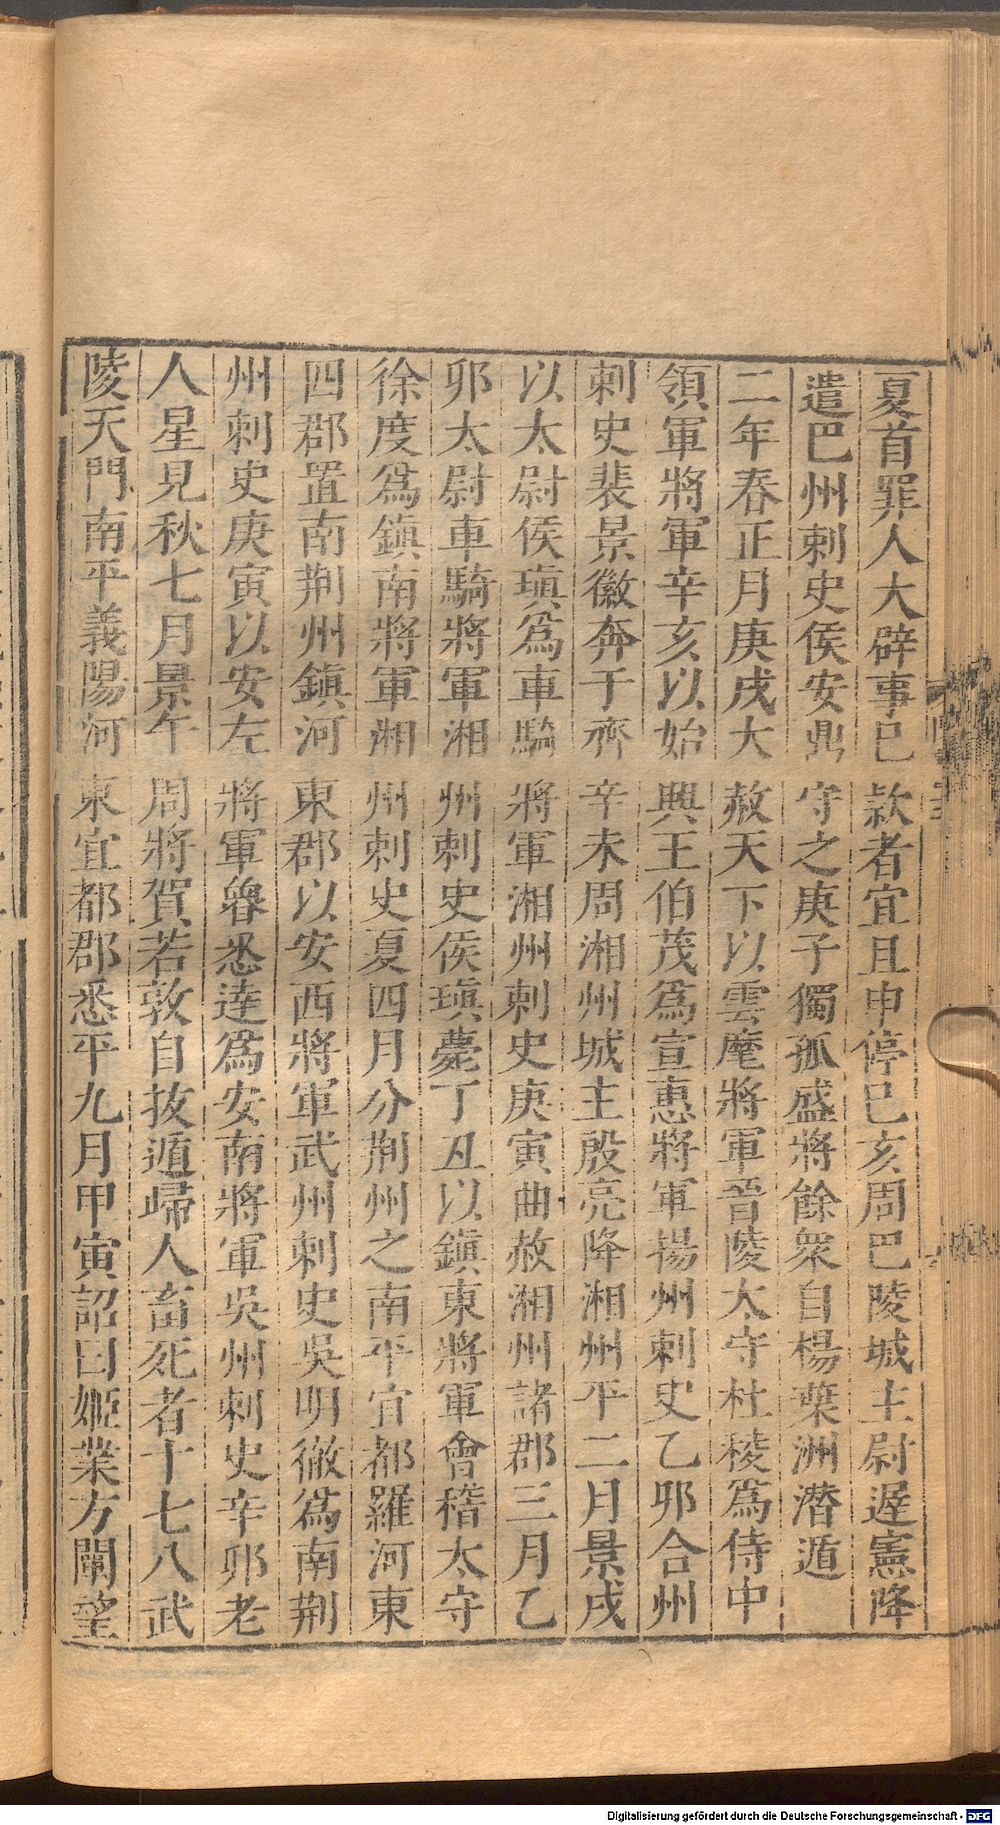 夏首罪人大辟事已款者宜且申停巳亥周巴陵城主尉遲憲降
遣巴州刺史侯安鼎守之庚子獨孤盛將餘衆自楊葉洲潛遁
二年春正月庚戌大赦天下以雲麾將軍晉陵太守杜稜爲侍中
領軍將軍辛亥以始興王伯茂爲宣惠將軍揚州刺史乙卯合州
刺史裴景徽奔于齊辛未周湘州城主殷亮降湘州平二月景戌
以太尉侯瑱爲車騎將軍湘州刺史庚寅曲赦湘州諸郡三月乙
卯太尉車騎將軍湘州刺史侯瑱薨丁丑以鎭東將軍會稽太守
徐度爲鎭南將軍湘州刺史夏四月分荆州之南平宜都羅河東
四郡置南荆州鎭河東郡以安西將軍武州刺史吳明徹爲南荆
州刺史庚寅以安左將軍魯悉達爲安南將軍吳州刺史辛卯老
人星見秋七月景午周將賀若敦自拔遁歸人畜死者十七八武
陵天門南平義陽河東宜都郡悉平九月甲寅詔曰姬業方闡望
Digitalisierung gefördert durch die Deutsche Forschungsgemeinschaft - DFG